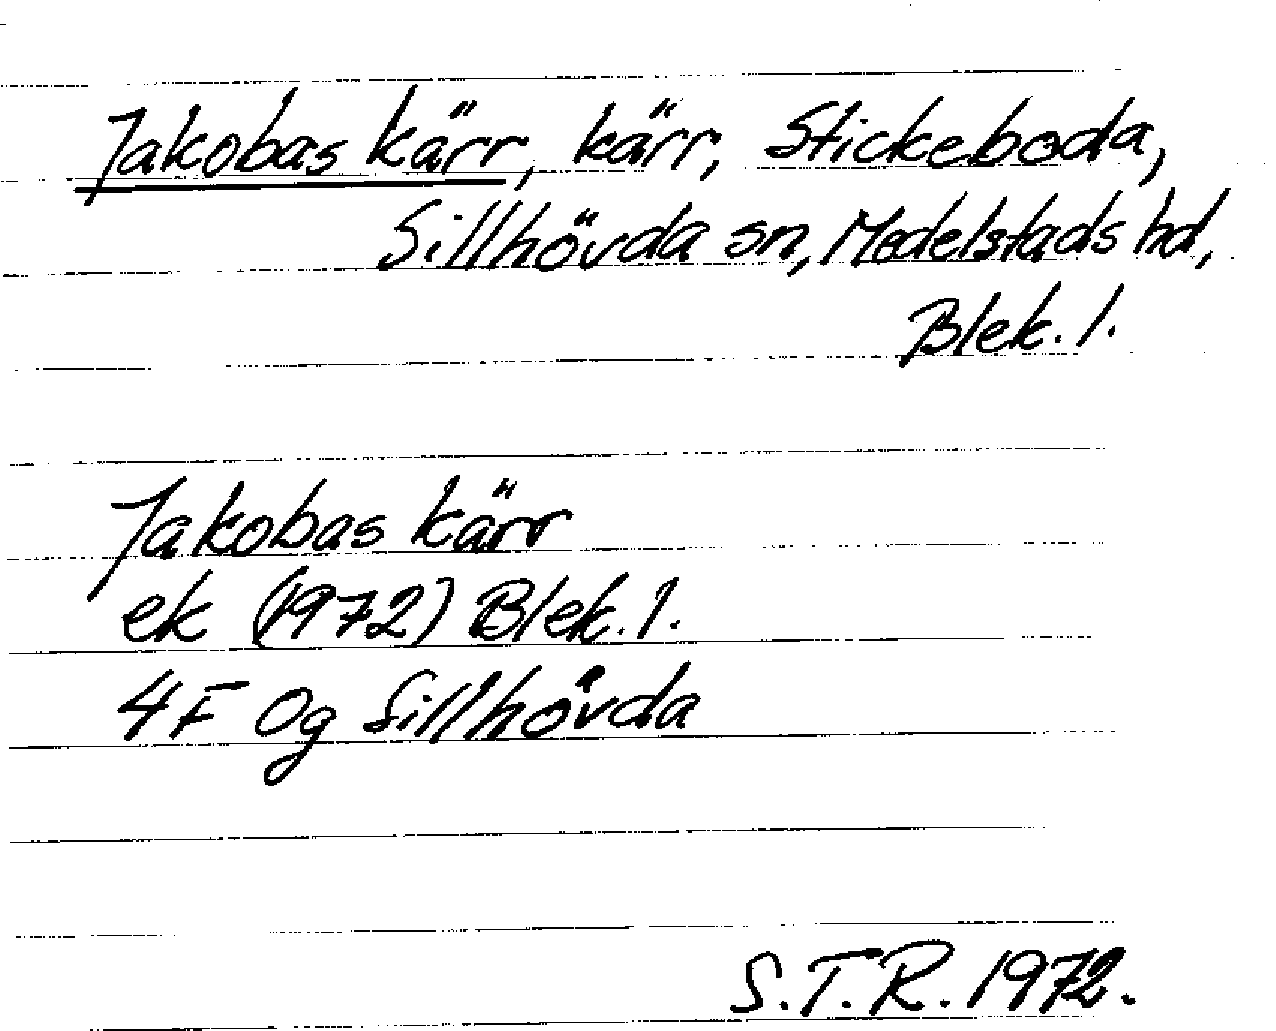 Jakobas kärr, kärr, Stickeboda,
Sillhövda sn, Medelstads hd,
Blek. l.
Jakobas kärr
ek (1972) Blek. l.
4F 0g Sillhövda
S.T.R. 1972.